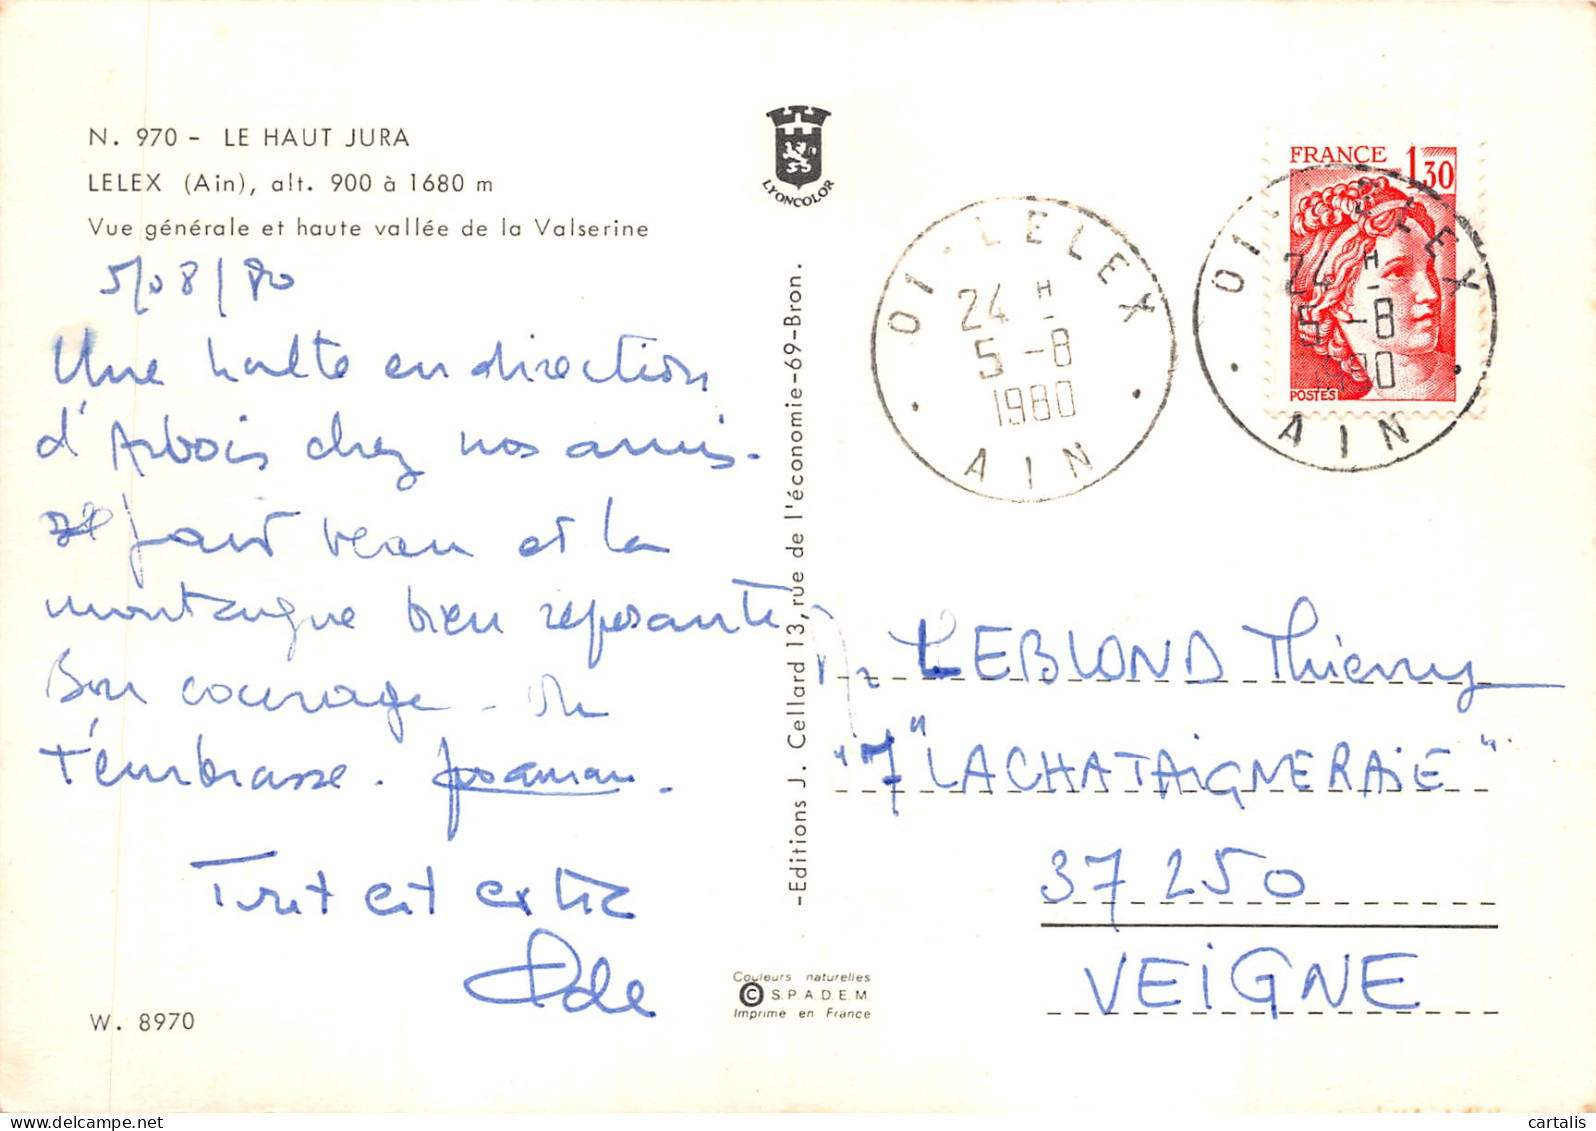 N. 970 - LE HAUT JURA
LELEX (Ain), alt. 900 à 1680 m
Vue générale et haute vallée de la Valserine
5/08/80
Une halte en direction
d'Arbois chez nos amis.
fait beau et la
montagne bien reposante
Bon courage - On
t'embrasse.
Tout est extra
Ode
W. 8970
LYONCOLOR
-Editions J. Cellard 13, rue de l'économie-69-Bron.
Couleurs naturelles
© S.P.A.D.E.M.
Imprimé en France
01-LELEX
24 H
5-8
1980
AIN
FRANCE 1,30
POSTES
01-LELEX
24 H
5-8
1980
AIN
Mr LEBLOND Thierry
"7" LA CHATAIGNERAIE"
37250
VEIGNE
cartalis
www.delcampe.net